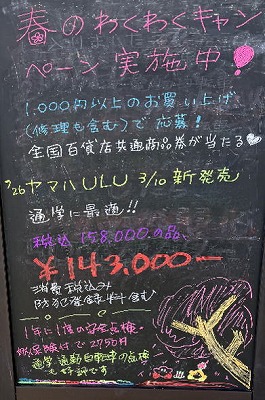 春のわくわくキャン
ペーン実施中!
1,000円以上のお買い上げ
(修理も含む)で応募!
全国百貨店共通商品券が当たる♡
'26ヤマハULU 3/10新発売♪
通学に最適!!
税込158,000の品、
¥143,000ー
消費税込み
防犯登録料含む♪
1年に1度の安全点検。
保険付で2750円
通学通勤自転車の点検
も好評です